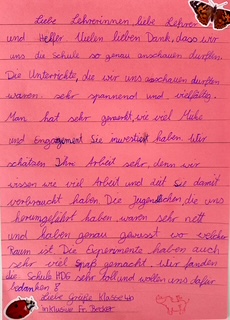 Liebe Lehrerinnen liebe Lehrer
und Helfer Vielen lieben Dank, dass wir
uns die Schule so genau anschauen durften.
Die Unterrichte, die wir uns anschauen durften
waren sehr spannend und vielfältig.
Man hat sehr gemerkt, wie viel Mühe
und Engagement Sie investiert haben. Wir
schätzen Ihre Arbeit sehr, denn wir
wissen wie viel Arbeit und Zeit Sie damit
verbraucht haben. Die Jugendlichen die uns
herumgeführt haben waren sehr nett
und haben genau gewusst wo welcher
Raum ist. Die Experimente haben auch
sehr viel Spaß gemacht. Wir fanden
die Schule HDG sehr toll und wollen uns dafür
bedanken!
Liebe Grüße Klasse 4a
inklusive Fr. Becker